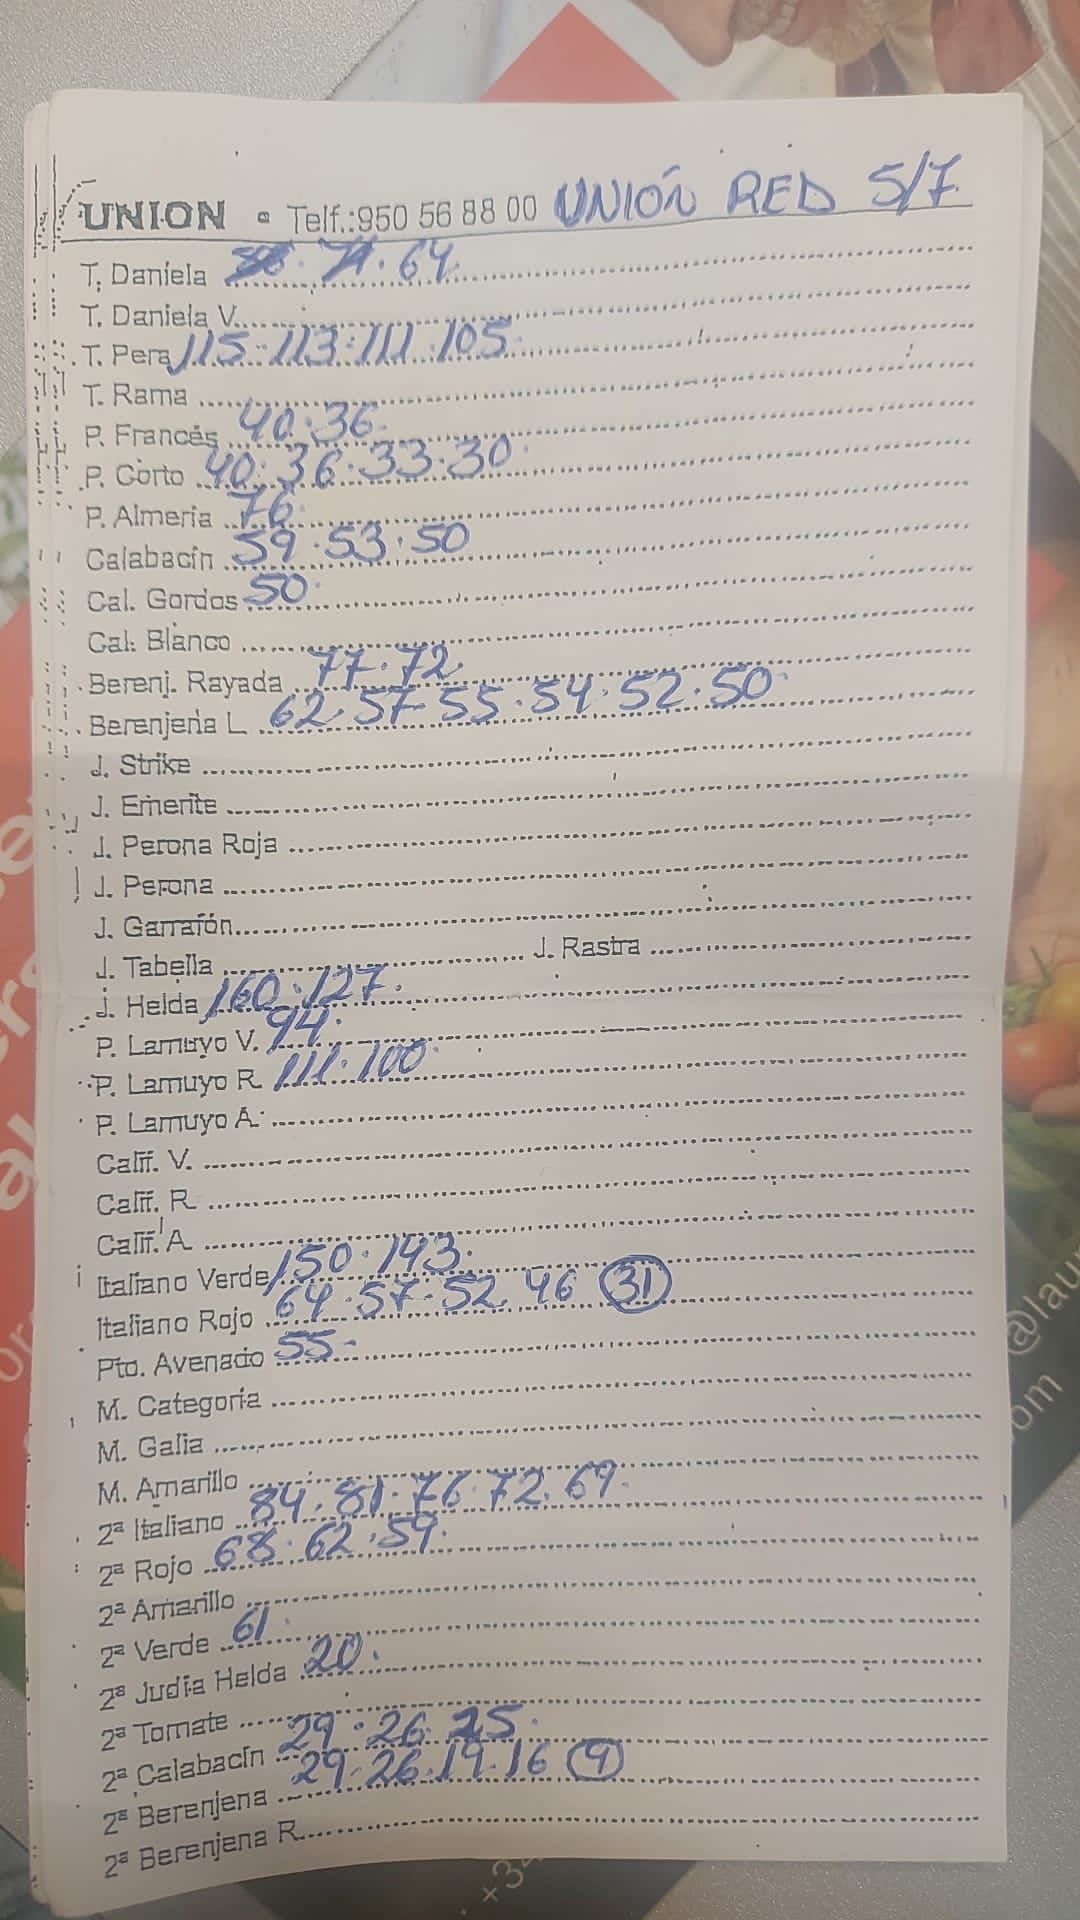 UNION • Telf.:950 56 88 00 UNIÓN RED 5/7.
T. Daniela 64
T. Daniela V.
T. Pera 115·113·111·105·
T. Rama
P. Francés 40·36·
P. Corto 40·36·33·30·
P. Almeria 76·
Calabacín 59·53·50
Cal. Gordos 50·
Cal. Blanco
Berenj. Rayada 77·72
Berenjena L. 62·57·55·54·52·50·
J. Strike
J. Emerite
J. Perona Roja
J. Perona
J. Garrafón
J. Tabella J. Rastra
J. Helda 160·127·
P. Lamuyo V. 94·
P. Lamuyo R. 111·100·
P. Lamuyo A.
Calif. V.
Calif. R.
Calif. A.
Italiano Verde 150·143·
Italiano Rojo 64·57·52·46 31
Pto. Avenado 55-
M. Categoria
M. Galia
M. Amarillo
2ª Italiano 84·81·76·72·69·
2ª Rojo 68·62·59·
2ª Amarillo
2ª Verde 61·
2ª Judia Helda 20·
2ª Tomate
2ª Calabacín 29·26·25·
2ª Berenjena 29·26·19·16 9
2ª Berenjena R.
@lau
om
+34